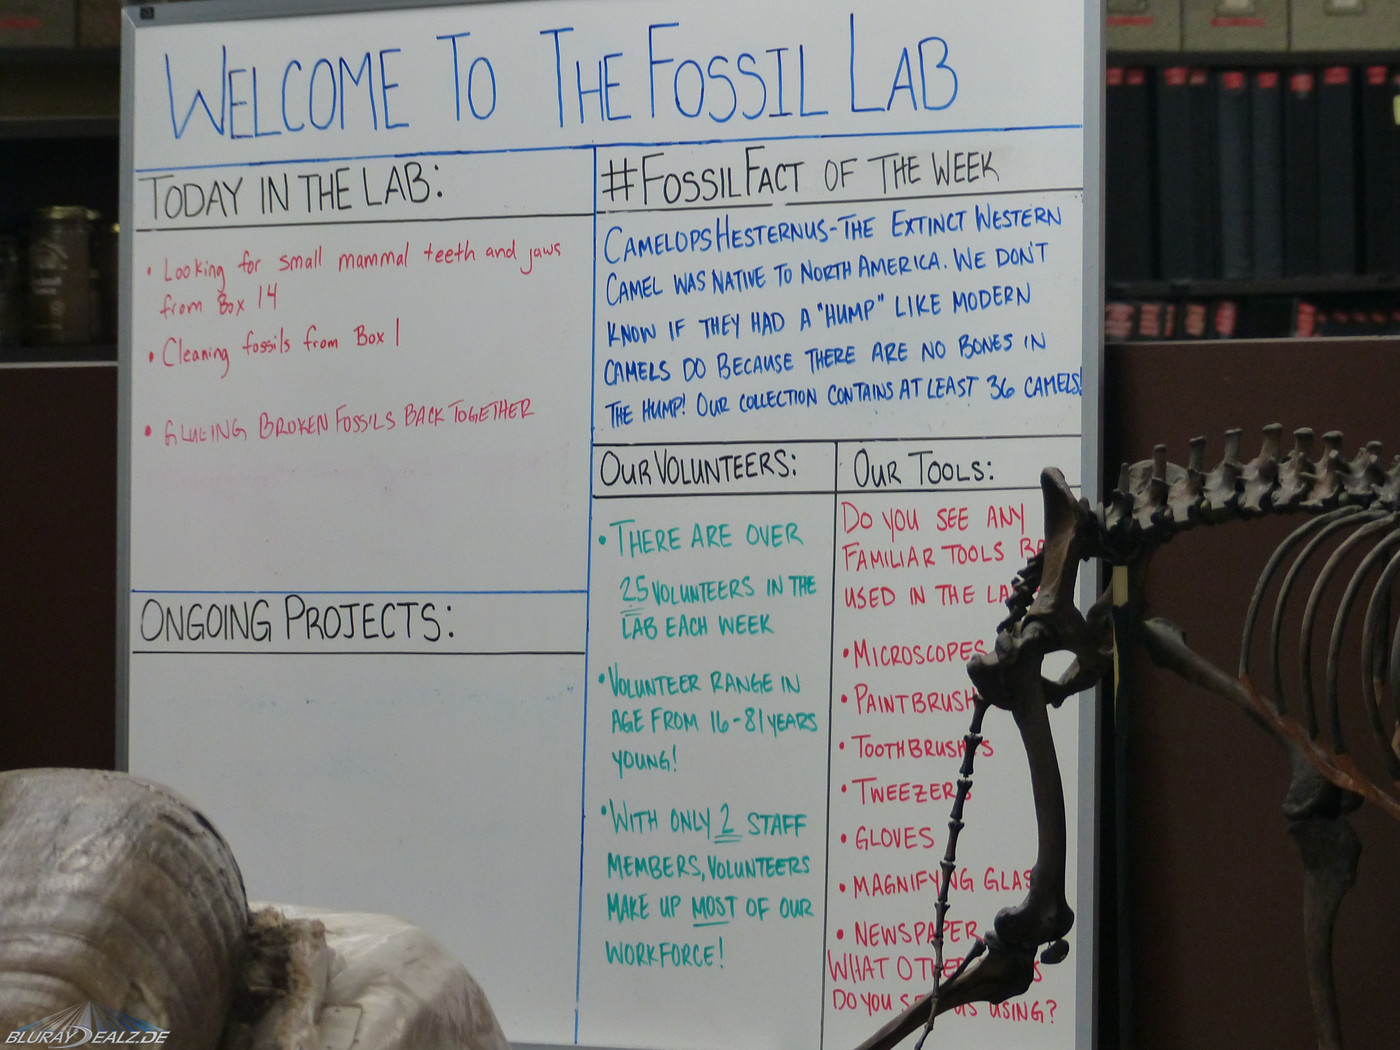 WELCOME TO THE FOSSIL LAB
TODAY IN THE LAB:
• Looking for small mammal teeth and jaws
from Box 14
• Cleaning fossils from Box 1
• GLUEING BROKEN FOSSILS BACK TOGETHER
ONGOING PROJECTS:
#FOSSILFACT OF THE WEEK
CAMELOPS HESTERNUS-THE EXTINCT WESTERN
CAMEL WAS NATIVE TO NORTH AMERICA. WE DON'T
KNOW IF THEY HAD A "HUMP" LIKE MODERN
CAMELS DO BECAUSE THERE ARE NO BONES IN
THE HUMP! OUR COLLECTION CONTAINS AT LEAST 36 CAMELS!
OUR VOLUNTEERS:
• THERE ARE OVER
25 VOLUNTEERS IN THE
LAB EACH WEEK
• VOLUNTEER RANGE IN
AGE FROM 16-81 YEARS
YOUNG!
• WITH ONLY 2 STAFF
MEMBERS, VOLUNTEERS
MAKE UP MOST OF OUR
WORKFORCE!
OUR TOOLS:
DO YOU SEE ANY
FAMILIAR TOOLS
USED IN THE
• MICROSCOPES
• PAINTBRUSH
• TOOTHBRUSHES
• TWEEZERS
• GLOVES
• MAGNIFYING GLAS
• NEWSPAPER
WHAT
DO YOU US USING?
BLURAYDEALZ.DE